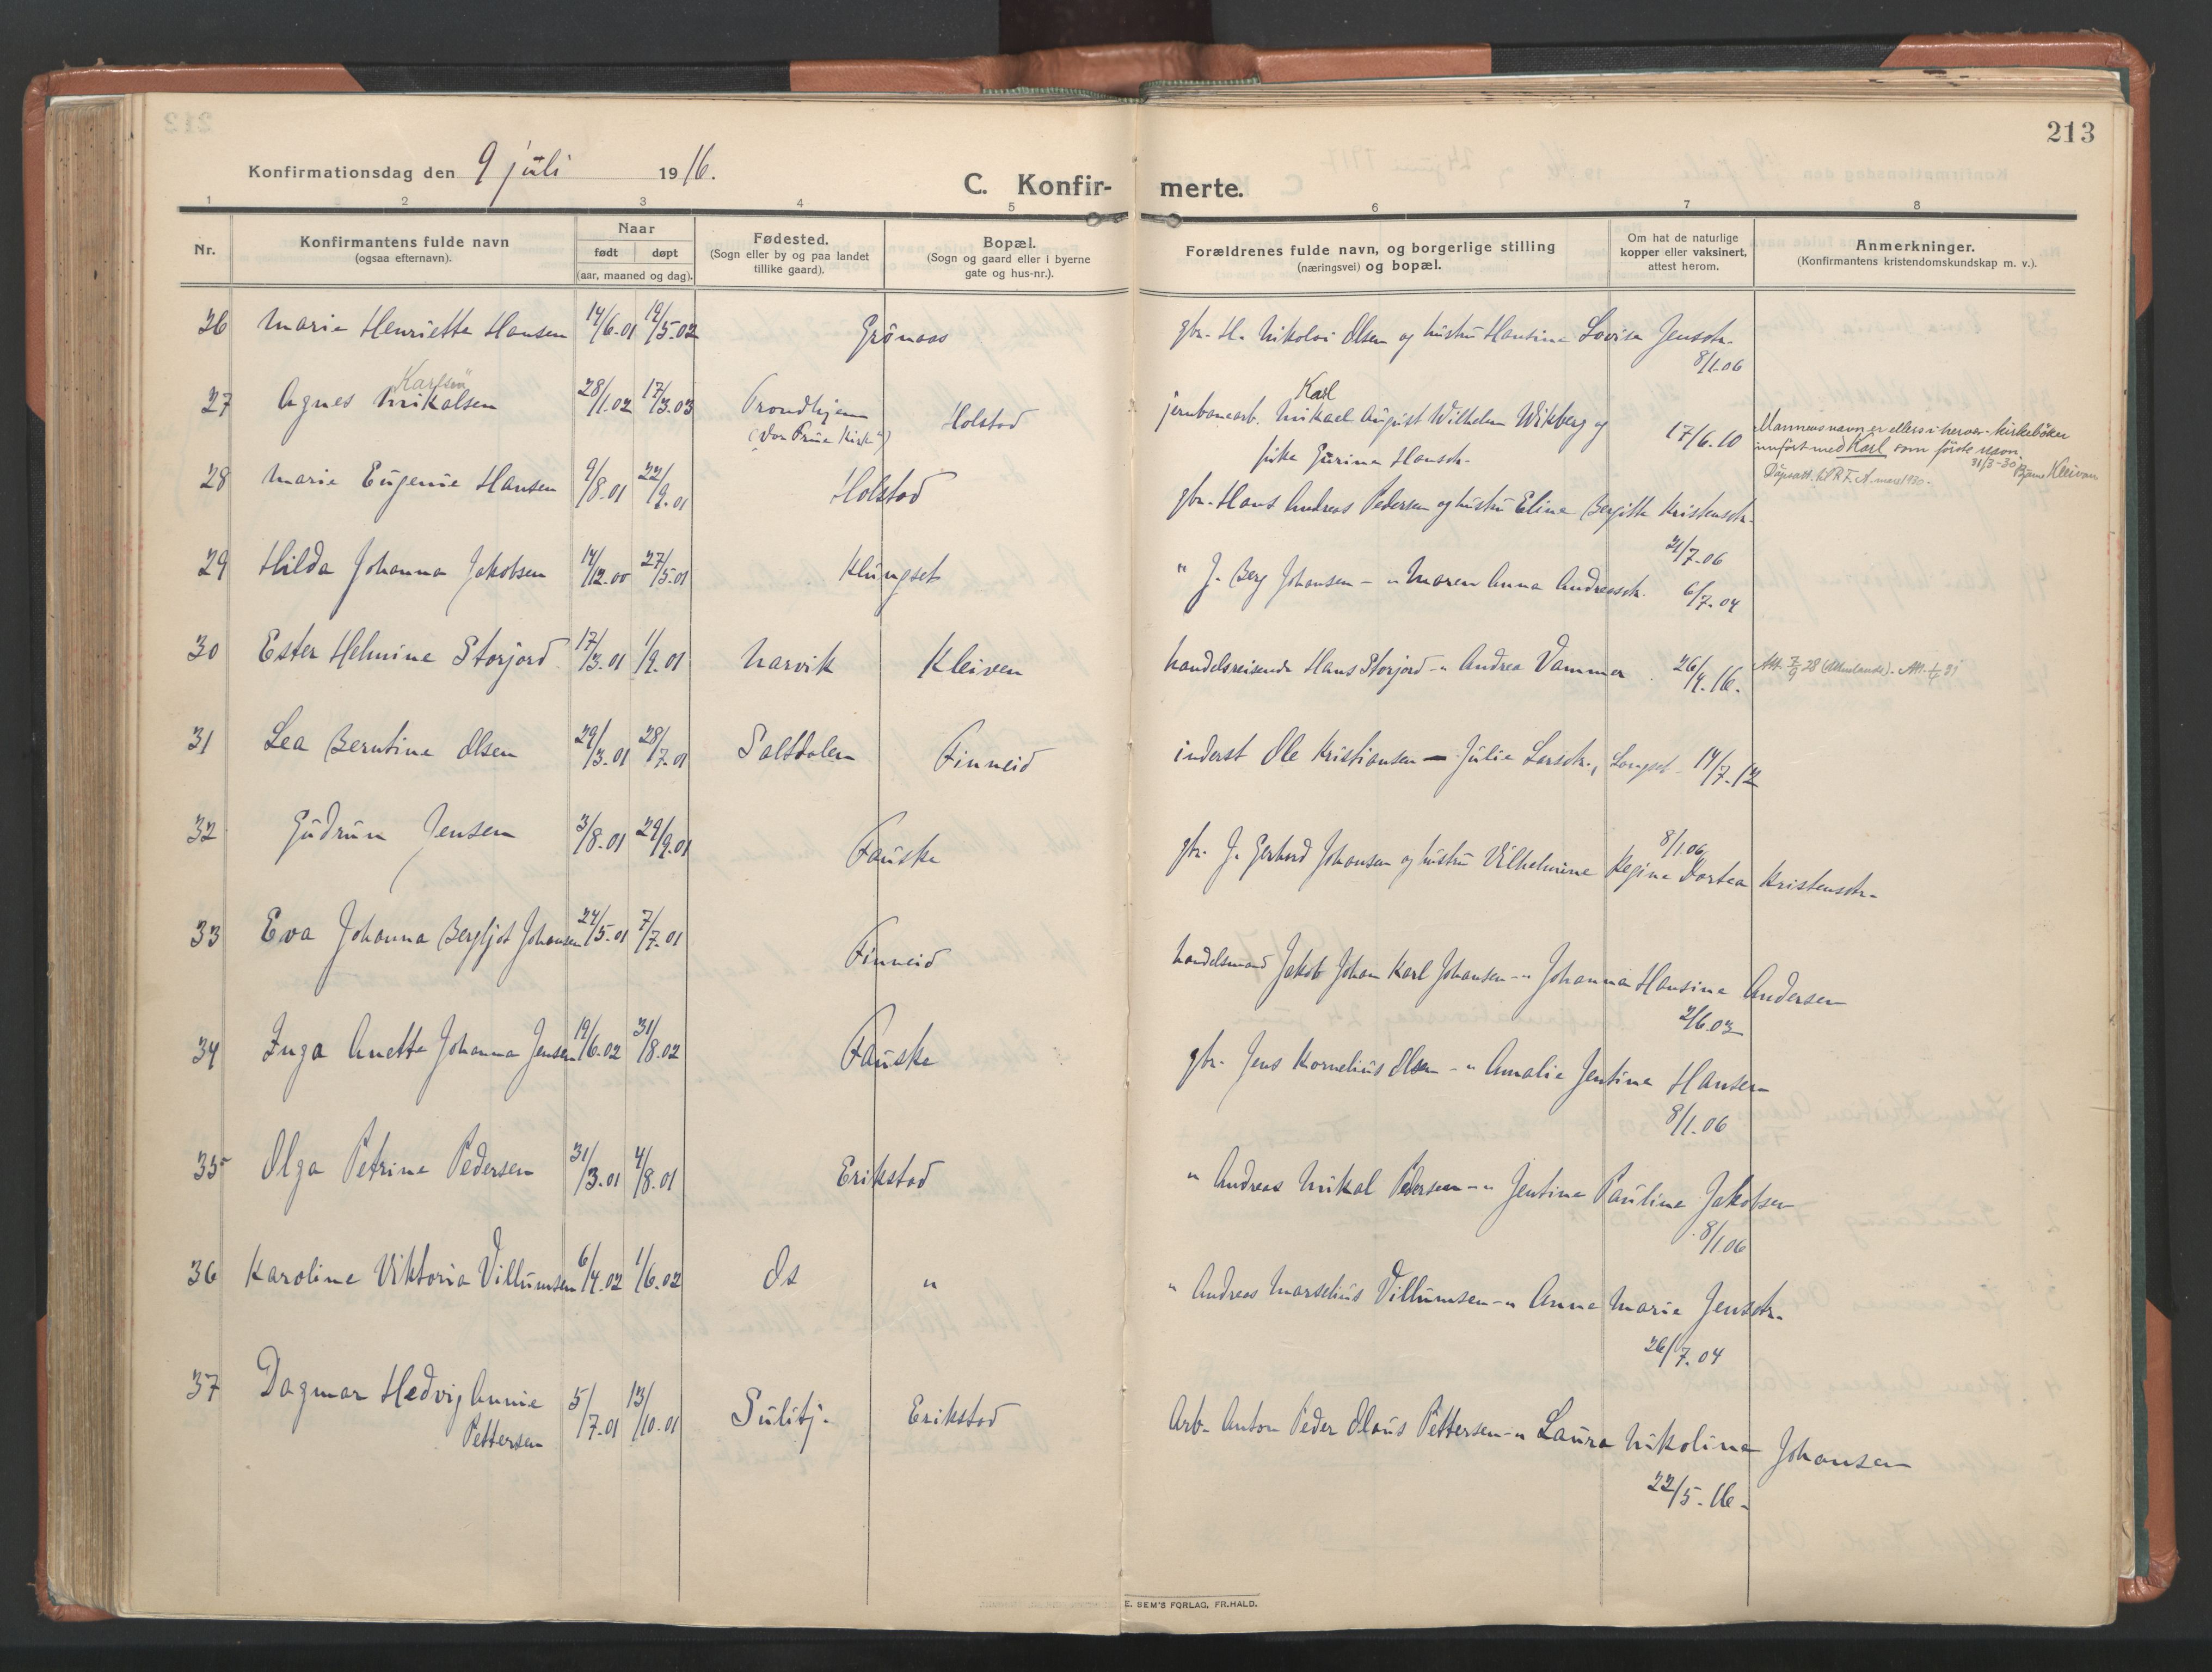 213
Konfirmationsdag den 9 juli 1916.
C. Konfir- merte.
1 2 3 4 5 6 7 8
Nr.
Konfirmantens fulde navn
(ogsaa efternavn).
Naar
født døpt
(aar, maaned og dag).
Fødested.
(Sogn eller by og paa landet
tillike gaard).
Bopæl.
(Sogn og gaard eller i byerne
gate og hus-nr.).
Forældrenes fulde navn, og borgerlige stilling
(næringsvei) og bopæl.
Om hat de naturlige
kopper eller vaksinert,
attest herom.
Anmerkninger.
(Konfirmantens kristendomskundskap m. v.).
26 Marie Henriette Hansen 14/6.01 19/5.02 Grönaas gbr. H. Nikolai Olsen og hustru Hansine Lovise Jensdtr.
8/1.06
Karlsen
27 Agnes Mikalsen 28/1.02 17/3.03 Trondhjem Holstad jernbanearb. Mikael August Wilhelm Wikberg og 17/6.10
(Vor Frue Kirke)
Karl
pike Gurine Hansdtr.
Mannens navn er ellers i herv. kirkeböker
innfört med Karl som förste navn.
31/3-30 Bjarne Kleivan
Dåpsatt. til R.F.A. mars 1930.
28 Marie Eugenie Hansen 9/8.01 22/9.01 Holstad gbr. Hans Andreas Pedersen og hustru Eline Bergitte Kristensdtr.
21/7.06
29 Hilda Johanna Jakobsen 14/12.00 27/5.01 Klungset " J. Berg Johansen - " Maren Anna Andreasdtr. 6/7.04
30 Ester Helmine Storjord 17/3.01 1/9.01 Narvik Kleiven handelsreisende Hans Storjord - " Andrea Vammer 26/4.16.
31 Lea Berntine Olsen 29/3.01 28/7.01 Saltdalen Finneid inderst Ole Kristiansen - Julie Larsdtr., Longset - 14/7.12
32 Gudrun Jensen 3/8.01 29/9.01 Fauske gbr. J. Gerhard Johansen og hustru Vilhelmine Regine Dortea Kristensdtr.
8/1.06
33 Eva Johanna Bergljot Johansen 24/5.01 7/7.01 Finneid handelsmand Jakob Johan Karl Johansen - " Johanna Hansine Andersen
2/6.03
34 Inga Anette Johanna Jensen 19/6.02 31/8.02 Fauske gbr. Jens Kornelius Olsen - " Amalie Jentine Hansen
8/1.06
35 Olga Petrine Pedersen 31/3.01 4/8.01 Erikstad " Andreas Mikal Pedersen - " Jentine Pauline Jakobsen
8/1.06
36 Karoline Viktoria Villumsen 6/4.02 1/6.02 ds " " Andreas Marselius Villumsen - " Anne Marie Jensdtr.
26/7.04
37 Dagmar Hedvig Annie 5/7.01 13/10.01 Sulitj. Erikstad Arb. Anton Peder Olaus Pettersen - " Laura Nikoline Johansen
Pettersen
22/5.16.
E. SEM'S FORLAG, FR.HALD.